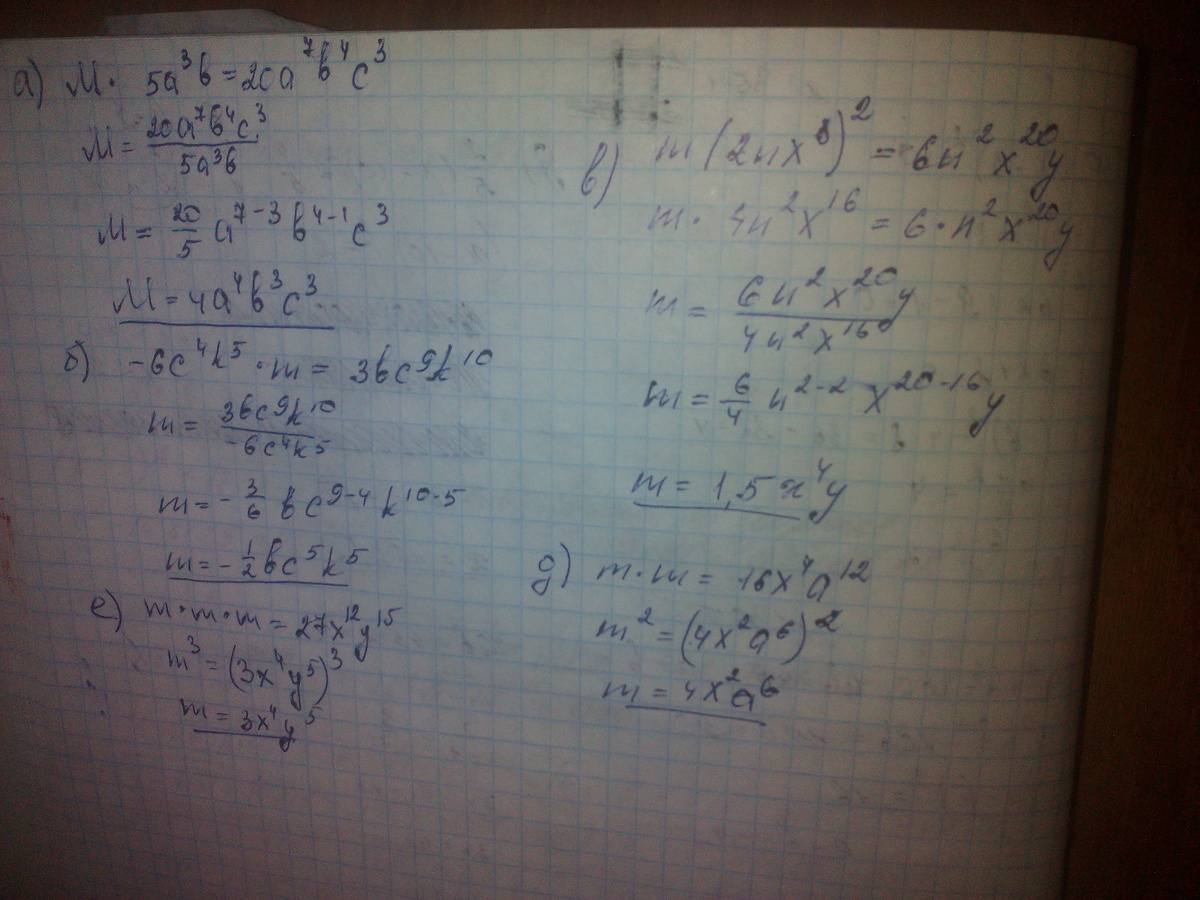 а) M · 5a³b = 20a⁷b⁴c³
M = 20a⁷b⁴c³ / 5a³b
M = 20/5 a⁷⁻³ b⁴⁻¹ c³
M = 4a⁴b³c³
б) -6c⁴k⁵ · m = 3bc⁹k¹⁰
m = 3bc⁹k¹⁰ / -6c⁴k⁵
m = - 3/6 bc⁹⁻⁴ k¹⁰⁻⁵
m = - 1/2 bc⁵k⁵
е) m · m · m = 27x¹²y¹⁵
m³ = (3x⁴y⁵)³
m = 3x⁴y⁵
в) m (2nx⁸)² = 6n²x²⁰y
m · 4n²x¹⁶ = 6 · n²x²⁰y
m = 6n²x²⁰y / 4n²x¹⁶
m = 6/4 n²⁻² x²⁰⁻¹⁶y
m = 1,5x⁴y
д) m · m = 16x⁴a¹²
m² = (4x²a⁶)²
m = 4x²a⁶